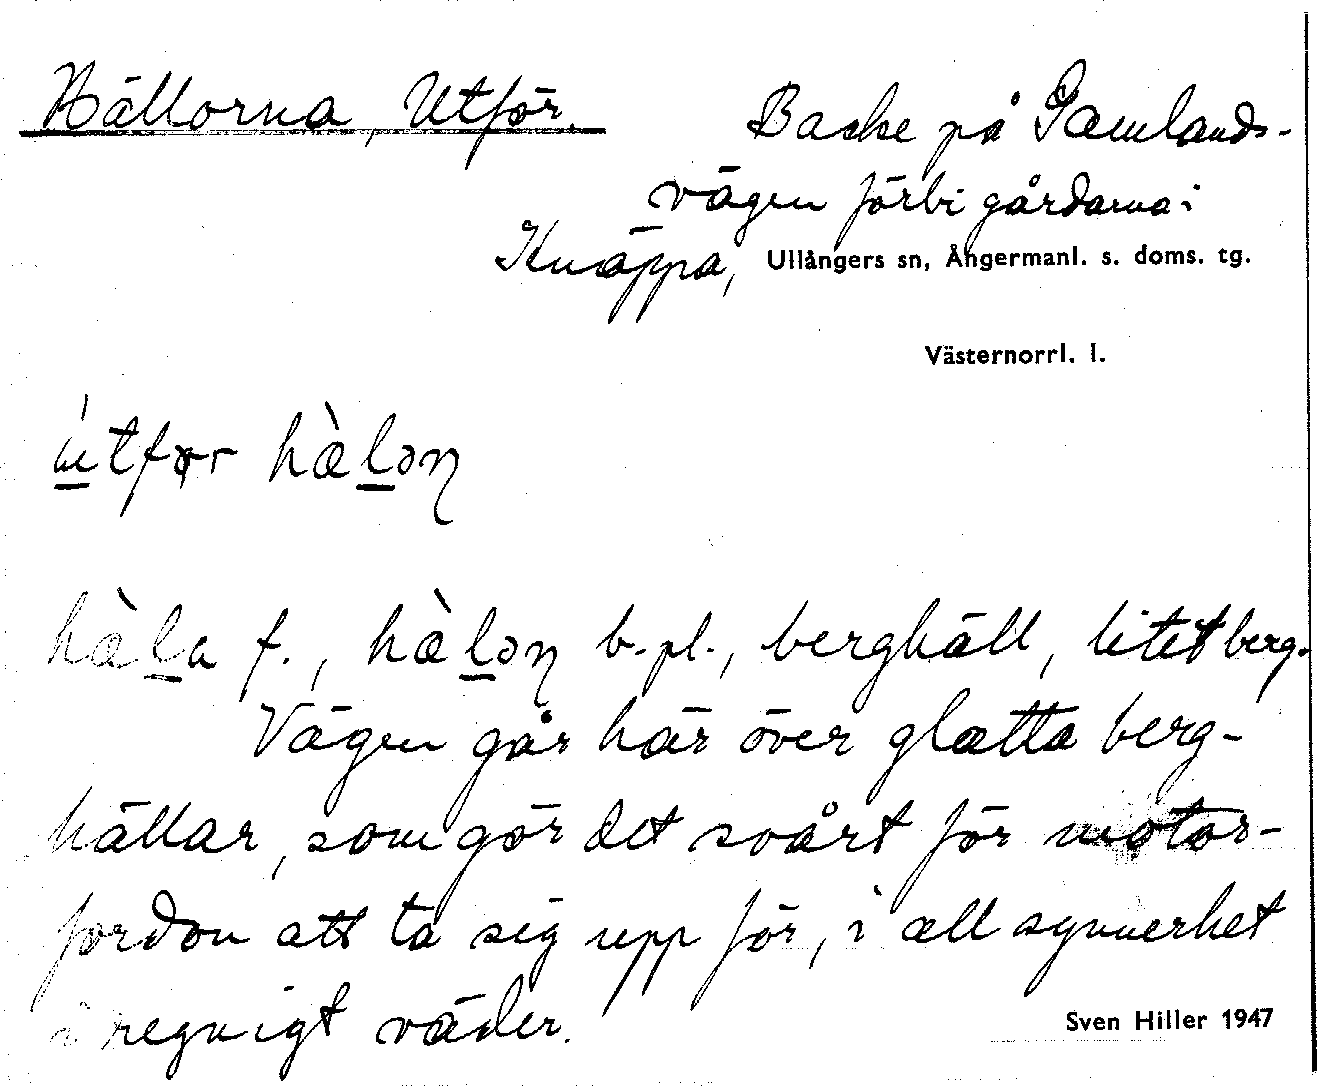 Hällorna, Utför.
Backe på Gamlands-
vägen förbi gårdarna i
Knäppa, Ullångers sn, Ångermanl. s. doms. tg.
Västernorrl. l.
útfør hὰlɔn
hὰla f., hὰlɔn b.pl., berghäll, litet berg.
Vägen går här över glatta berg-
hällar, som gör det svårt för motor-
fordon att ta sig upp för, i all synnerhet
i regnigt väder.
Sven Hiller 1947